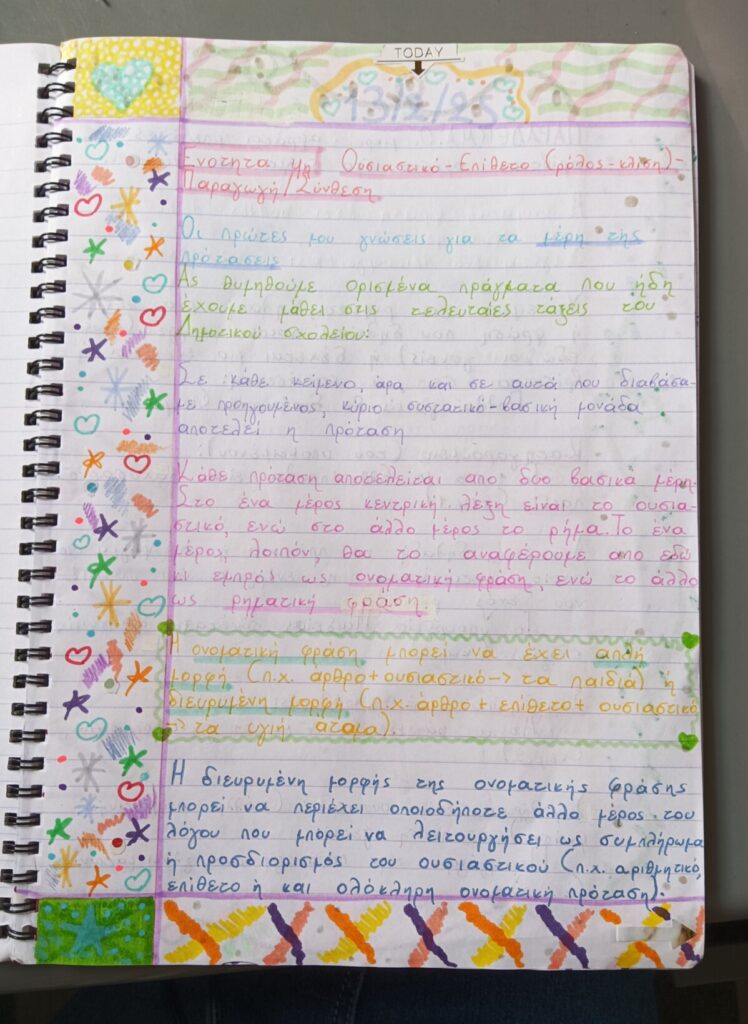 TODAY
13/2/25
Ενότητα 4η Ουσιαστικό-Επίθετο (ρόλος-κλίση)-
Παραγωγή/Σύνθεση
Οι πρώτες μου γνώσεις για τα μέρη της
πρότασεις
Ας θυμηθούμε ορισμένα πράγματα που ήδη
έχουμε μάθει στις τελευταίες τάξεις του
Δημοτικού σχολείου:
Σε κάθε κείμενο, άρα και σε αυτά που διαβάσα-
με προηγουμένος, κύριο συστατικό-βασική μονάδα
αποτελεί η πρόταση
Κάθε πρόταση αποτελείται απο δύο βασικά μέρη.
Στο ένα μέρος κεντρική λέξη είναι το ουσια-
στικό, ενώ στο άλλο μέρος το ρήμα. Το ένα
μέρος, λοιπόν, θα το αναφέρουμε απο εδώ
κι εμπρός ως ονοματική φράση, ενώ το άλλο
ως ρηματική φράση.
Η ονοματική φράση μπορεί να έχει απλή
μορφή (π.χ. άρθρο+ουσιαστικό→ τα παιδιά) ή
διευρυμένη μορφή (π.χ. άρθρο + επίθετο+ ουσιαστικό
→ τα υγιή άτομα).
Η διευρυμένη μορφής της ονοματικής φράσης
μπορεί να περιέχει οποιοδήποτε άλλο μέρος του
λόγου που μπορεί να λειτουργήσει ως συμπλήρωμα
ή προσδιορισμός του ουσιαστικού (π.χ. αριθμητικό,
επίθετο ή και ολόκληρη ονοματική πρόταση).